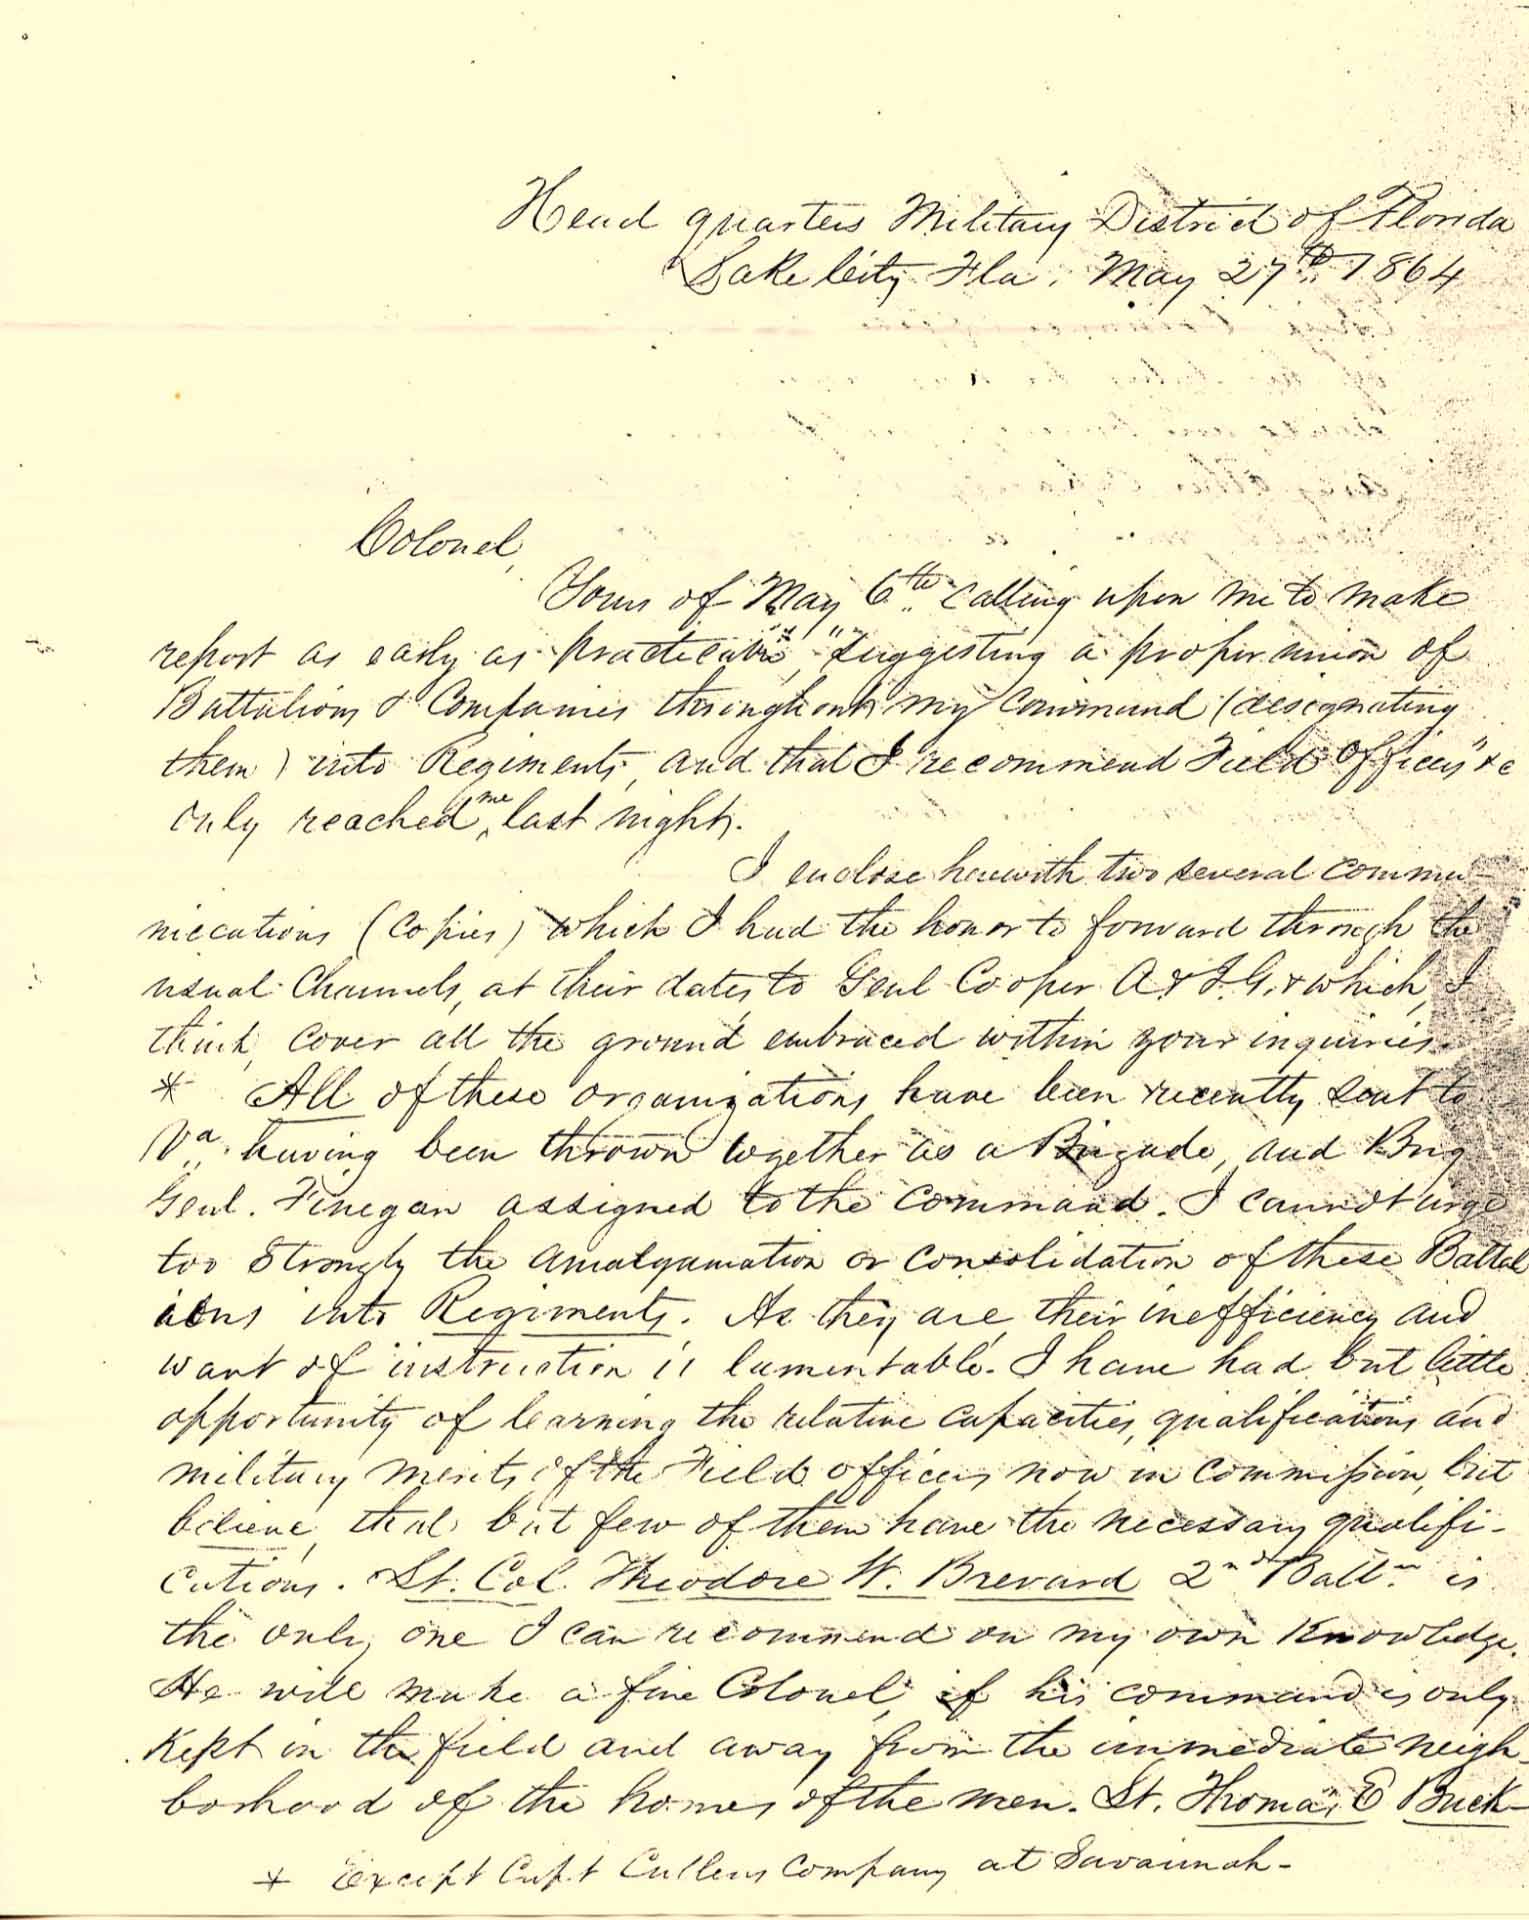 Head quarters Military District of Florida
Lake City Fla. May 27th 1864
Colonel,
Yours of May 6th calling upon me to make
report as early as practicable, "suggesting a proper union of
Battalions & Companies throughout my command (designating
them) into Regiments, and that I recommend Field Officers" &c
only reached me last night.
I enclose herewith two several commu-
nications (copies) which I had the honor to forward through the
usual Channels, at their dates, to Genl Cooper A & I. G. & which, I
think, cover all the ground embraced within your inquiries.
* All of these organizations have been recently sent to
Va. having been thrown together as a Brigade, and Brig
Genl. Finegan assigned to the command. I cannot urge
too strongly the amalgamation or consolidation of these Battal
ions into Regiments. As they are, their inefficiency and
want of instruction is lamentable. I have had but little
opportunity of learning the relative capacities, qualifications and
military merits of the Field officers now in commission, but
believe, that but few of them have the necessary qualifi-
cations. Lt. Col. Theodore W. Brevard 2nd Battn. is
the only one I can recommend on my own Knowledge.
He will make a fine Colonel, if his command is only
Kept in the field and away from the immediate neigh-
borhood of the homes of the men. Lt. Thomas E Buck-
* Except Capt Cullens Company at Savannah-